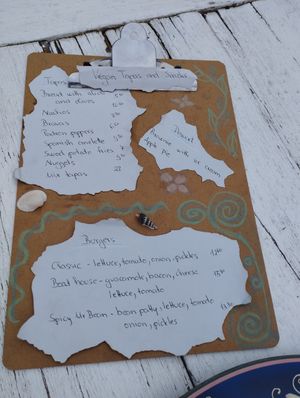 Vegan Tapas and Snacks
Tapas
Bread with alioli
and olives
Nachos
Bravas
Padron peppers
Spanish omelette
Sweet potato fries 7
Nuggets
Mix tapas 22
Dessert
Brownie with ice cream
Apple Pie
Burgers
Classic - lettuce, tomato, onion, pickles
Boat house - guacamole, bacon, cheese
lettuce, tomato
Spicy Mr Bean - bean patty, lettuce, tomato
onion, pickles